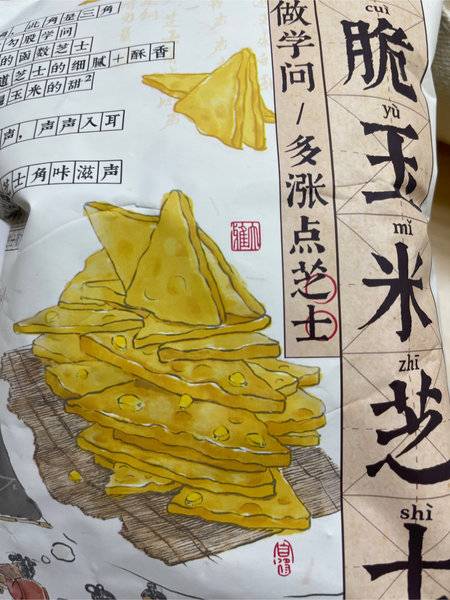 cuì
脆
yù
玉
mǐ
米
zhī
芝
shì
士
做学问/多涨点芝士
此角是三角
勾股学问
的函数芝士
道芝士的细腻+酥香
玉米的甜²
声,声声入耳
士角咔滋声